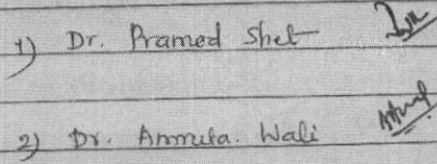 1) Dr. Pramod Shet
2) Dr. Ammuta. Wali